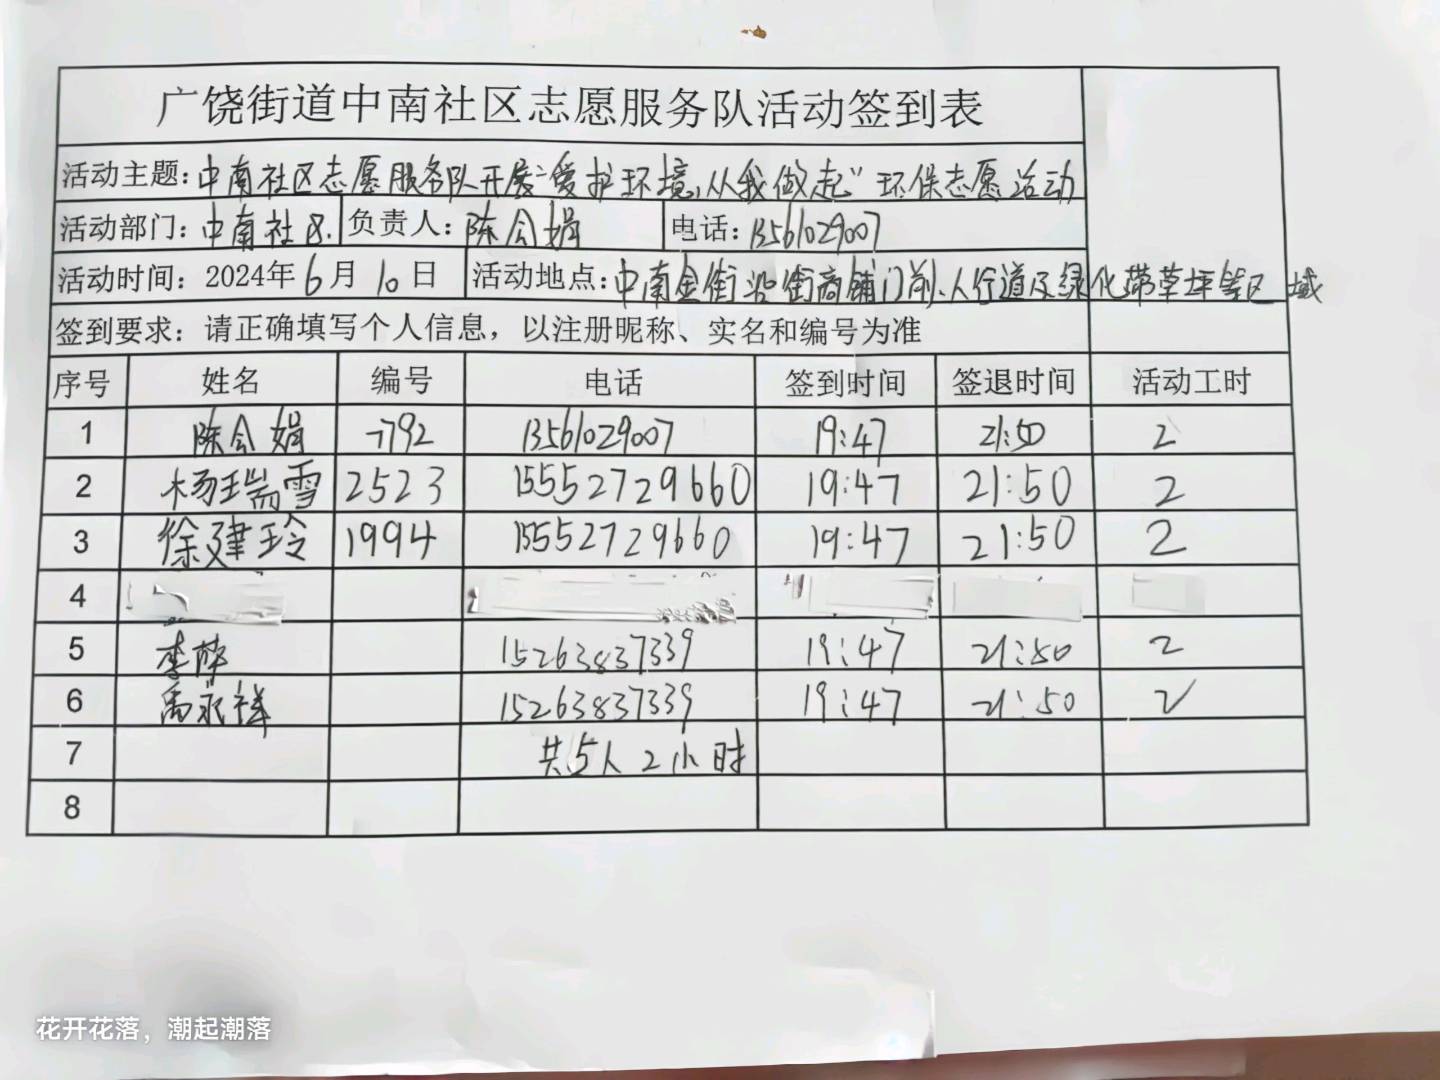 广饶街道中南社区志愿服务队活动签到表
活动主题：中南社区志愿服务队开展“爱护环境，从我做起”环保志愿活动
活动部门：中南社区. 负责人：陈会娟 电话：13561029007
活动时间：2024年6月10日 活动地点：中南金街沿街商铺门前、人行道及绿化带草坪等区域
签到要求：请正确填写个人信息，以注册昵称、实名和编号为准
序号 姓名 编号 电话 签到时间 签退时间 活动工时
1 陈会娟 7792 13561029007 19:47 21:50 2
2 杨瑞雪 2523 15552729660 19:47 21:50 2
3 徐建玲 1994 15552729660 19:47 21:50 2
4
5 李 15263837339 19:47 21:50 2
6 禹永祥 15263837339 19:47 21:50 2
7 共5人2小时
8
花开花落，潮起潮落